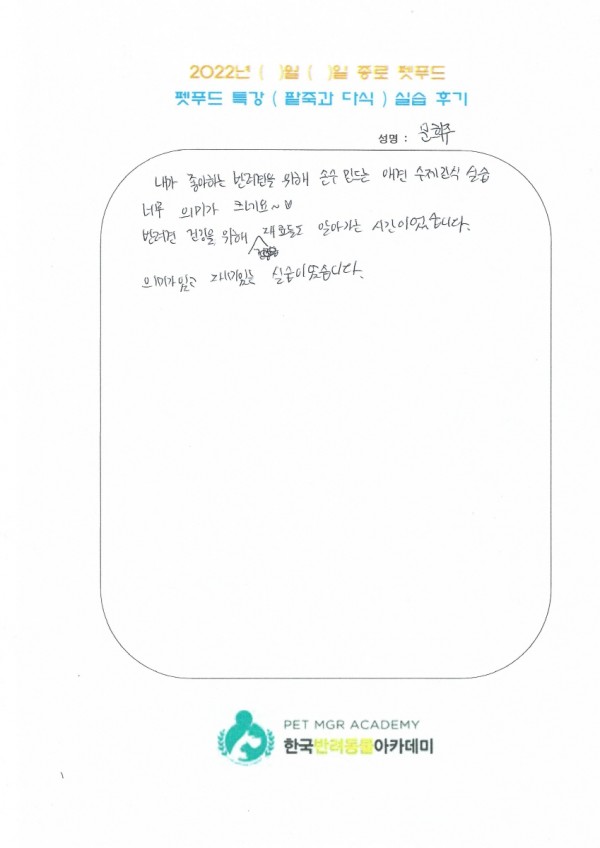 2022년 (  )일 (  )일 종로 펫푸드
펫푸드 특강 ( 팥죽과 다식 ) 실습 후기
성명 : 문희주
내가 좋아하는 반려견을 위해 손수 만드는 애견 수제간식 실습
너무 의미가 크네요~♡
반려견 건강을 위해 재료들도 알아가는 시간이었습니다.
의미가있고 재미있는 실습이었습니다.
PET MGR ACADEMY
한국반려동물아카데미